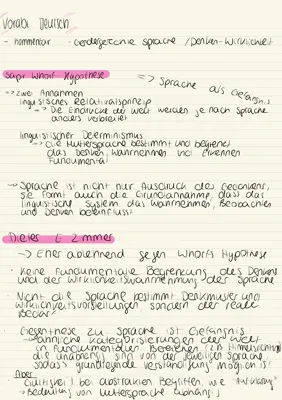 Vorabi Deutsch
- Kommentar - Gendergerechte Sprache / Denken-Wirklichkeit
Sapir Whorf Hypothese => Sprache als Gefängnis
=> Zwei Annahmen
linguistisches Relativitätsprinzip
-> Die Eindrücke der Welt werden je nach Sprache
anders verarbeitet
linguistischer Determinismus
-> Die Muttersprache bestimmt und begrenzt
das Denken, Wahrnehmen und Erkennen
Fundamental
-> Sprache ist nicht nur Ausdruck des Gedankens,
sie formt auch die Grundannahme, dass das
linguistische System das Wahrnehmen, Beobachten
und Denken beeinflusst
Dieter E Zimmer
-> Eher ablehnend gegen Whorfs Hypothese
· Keine Fundamentale Begrenzung des Denkens
und der Wirklichkeitswahrnehmung der Sprache
· Nicht die Sprache bestimmt Denkmuster und
Wirklichkeitsvorstellungen sondern der reale
Bedarf
· Gegenthese zu Sprache ist Gefängnis
-> ähnliche Kategorisierungen der Welt
in Fundamentaler Bereichen (z.B. Himmelsrichtung)
die unabhängig sind von der jeweiligen Sprache,
sodass grundlegende Verständigung möglich ist
Aber
· Gültigkeit bei abstrakten Begriffen, wie "Aufklärung"
-> Bedeutung von Muttersprache abhängig